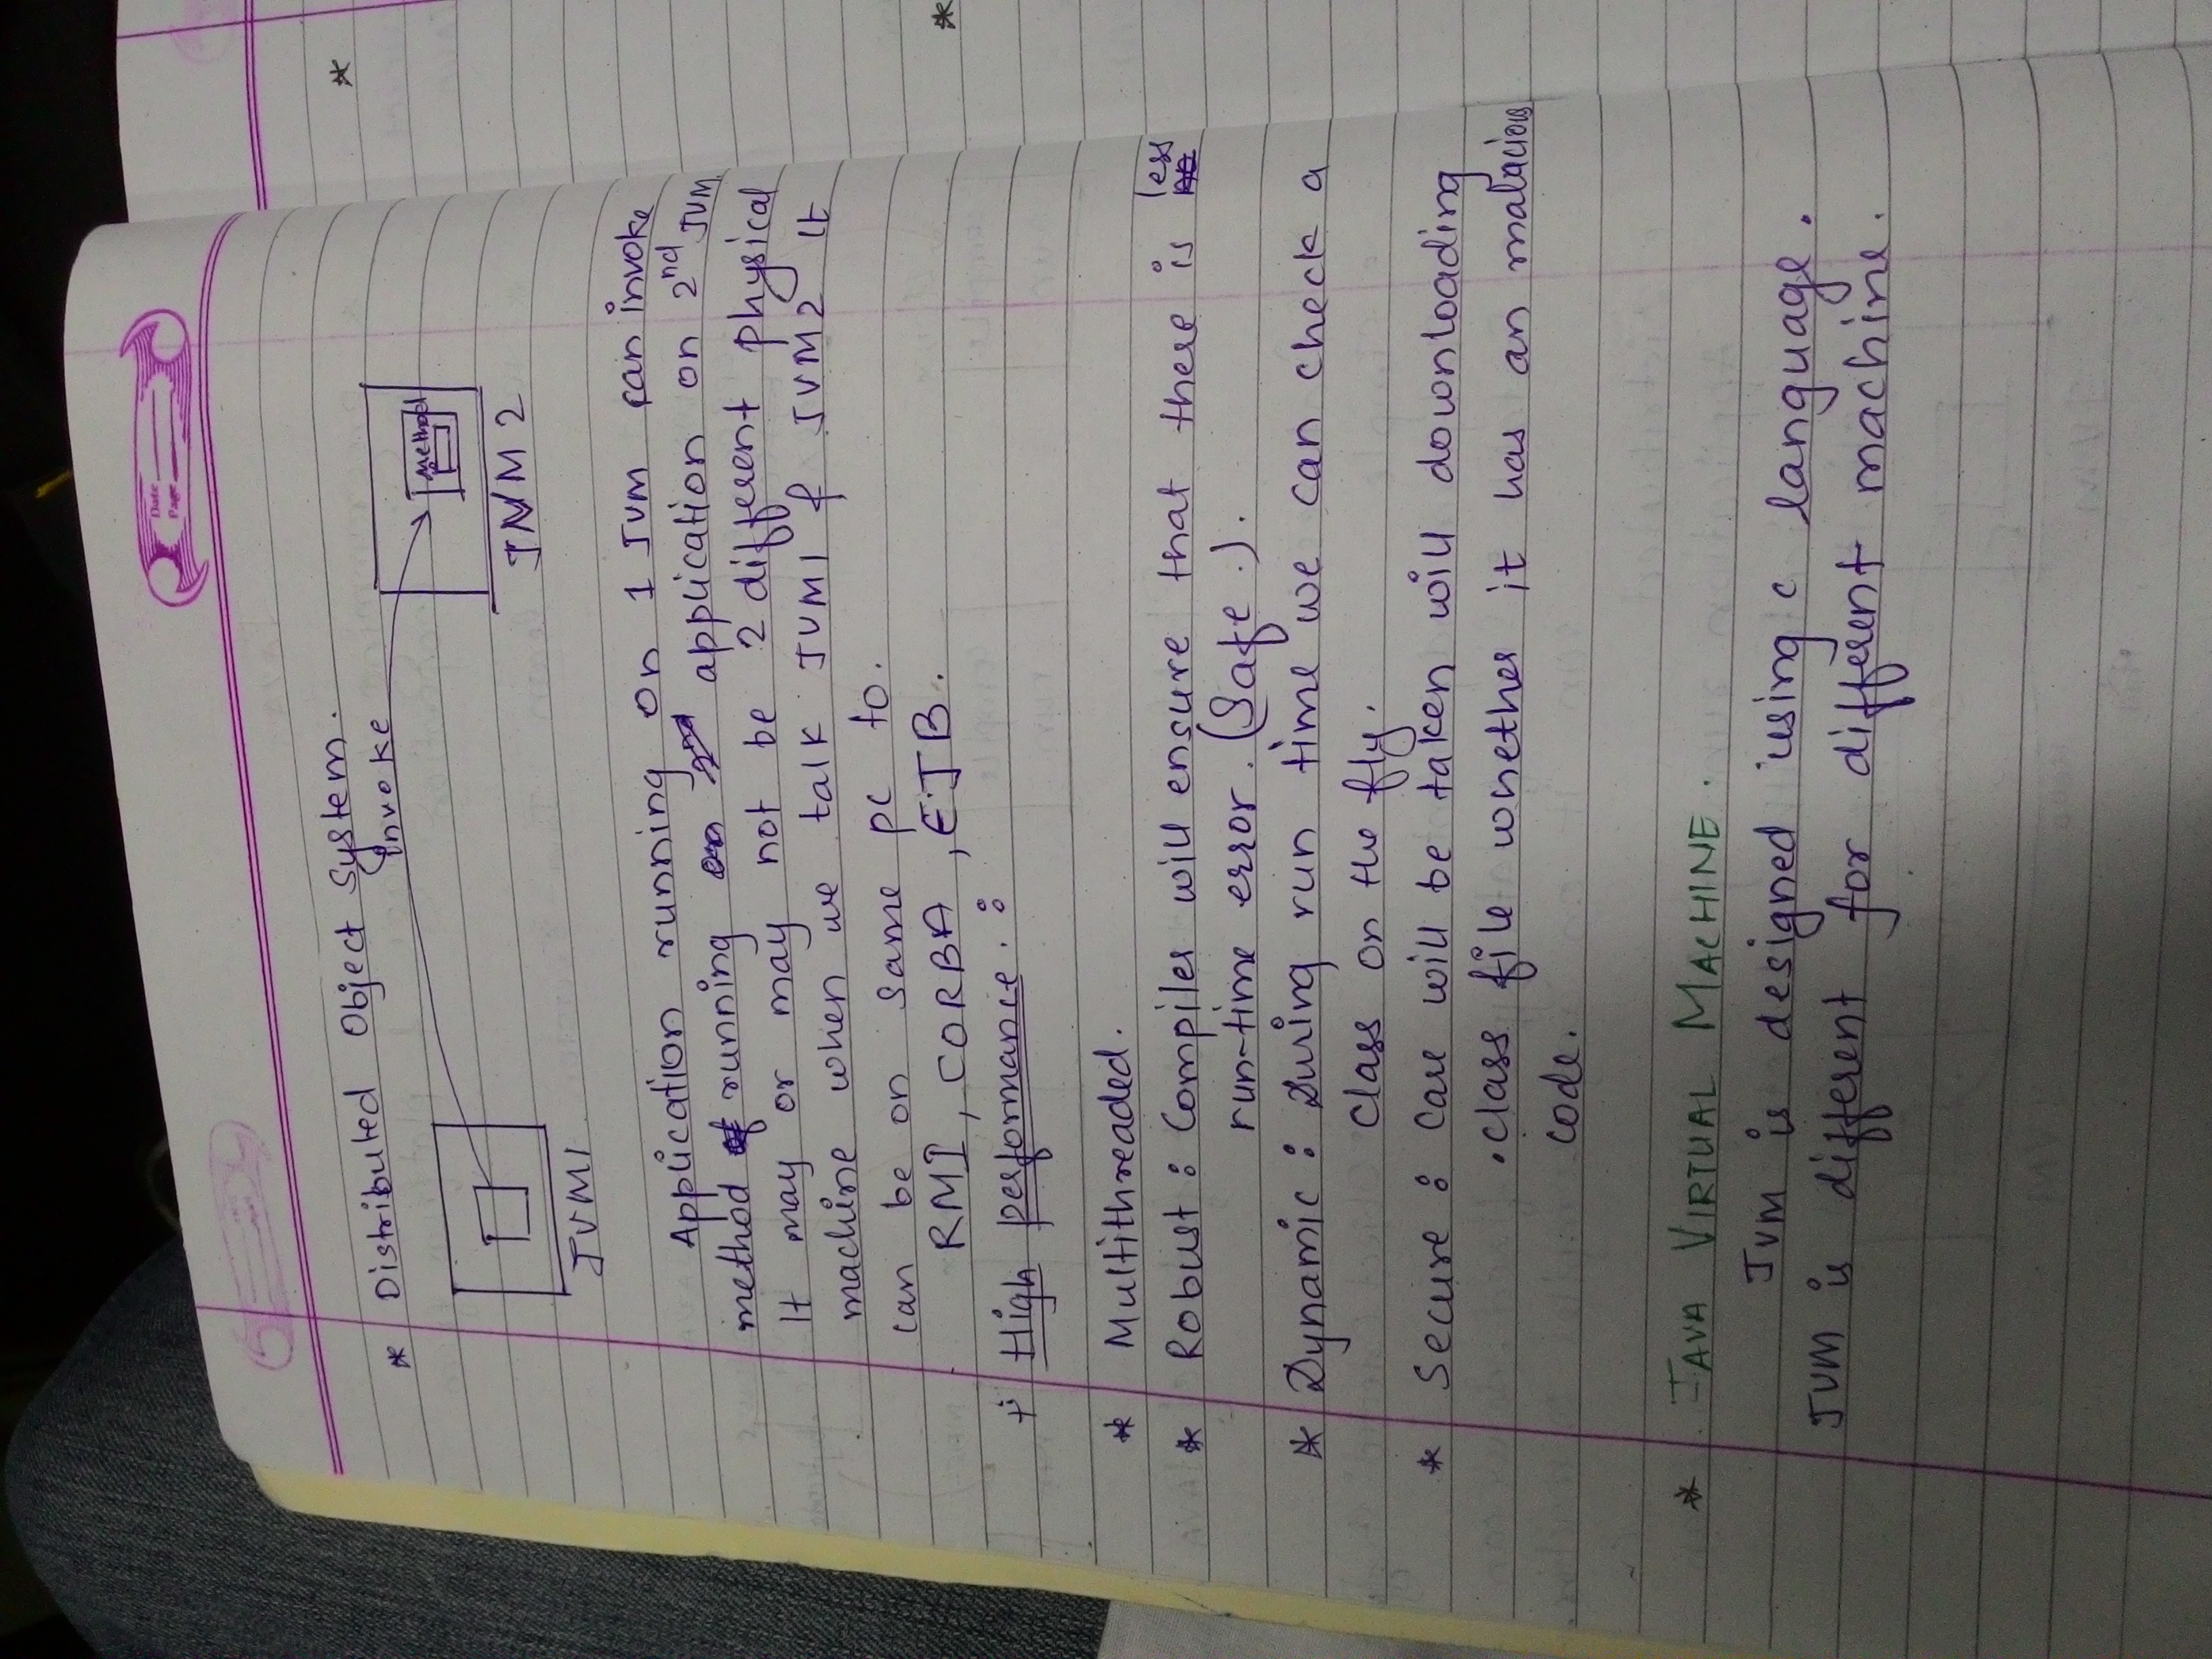 Date
Page
* Distributed Object System.
invoke
Method
JVM1
JVM 2
Application running on 1 JVM can invoke
method of running on 2nd application on 2nd JVM.
It may or may not be 2 different physical
machine when we talk JVM1 & JVM2 It
can be on same pc to.
RMI, CORBA, EJB.
+ High performance. :
* Multithreaded.
* Robust : Compiler will ensure that there is no less
run-time error. (Safe.).
* Dynamic : During run time we can check a
class on the fly.
* Secure : Care will be taken will downloading
.class file whether it has an malacious
code.
* JAVA VIRTUAL MACHINE.
JVM is designed using c language.
JVM is different for different machine.
*
*